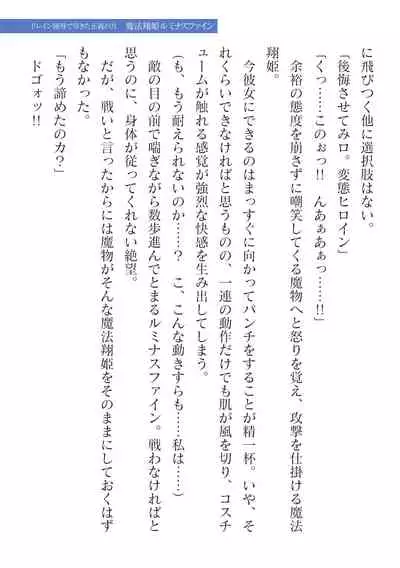 ドレイン陵辱で尽きた正義の力　魔法翔姫ルミナスファイン
に飛びつく他に選択肢はない。
「後悔させてみロ。変態ヒロイン」
「くっ……このぉっ!!　んあぁあぁっ……!!」
余裕の態度を崩さずに嘲笑してくる魔物へと怒りを覚え、攻撃を仕掛ける魔法
翔姫。
今彼女にできるのはまっすぐに向かってパンチをすることが精一杯。いや、そ
れくらいできなければと思うものの、一連の動作だけでも肌が風を切り、コスチ
ュームが触れる感覚が強烈な快感を生み出してしまう。
(も、もう耐えられないのか……？　こ、こんな動きすらも……私は……)
敵の目の前で喘ぎながら数歩進んでとまるルミナスファイン。戦わなければと
思うのに、身体が従ってくれない絶望。
だが、戦いと言ったからには魔物がそんな魔法翔姫をそのままにしておくはず
もなかった。
「もう諦めたのカ？」
ドゴォッ!!